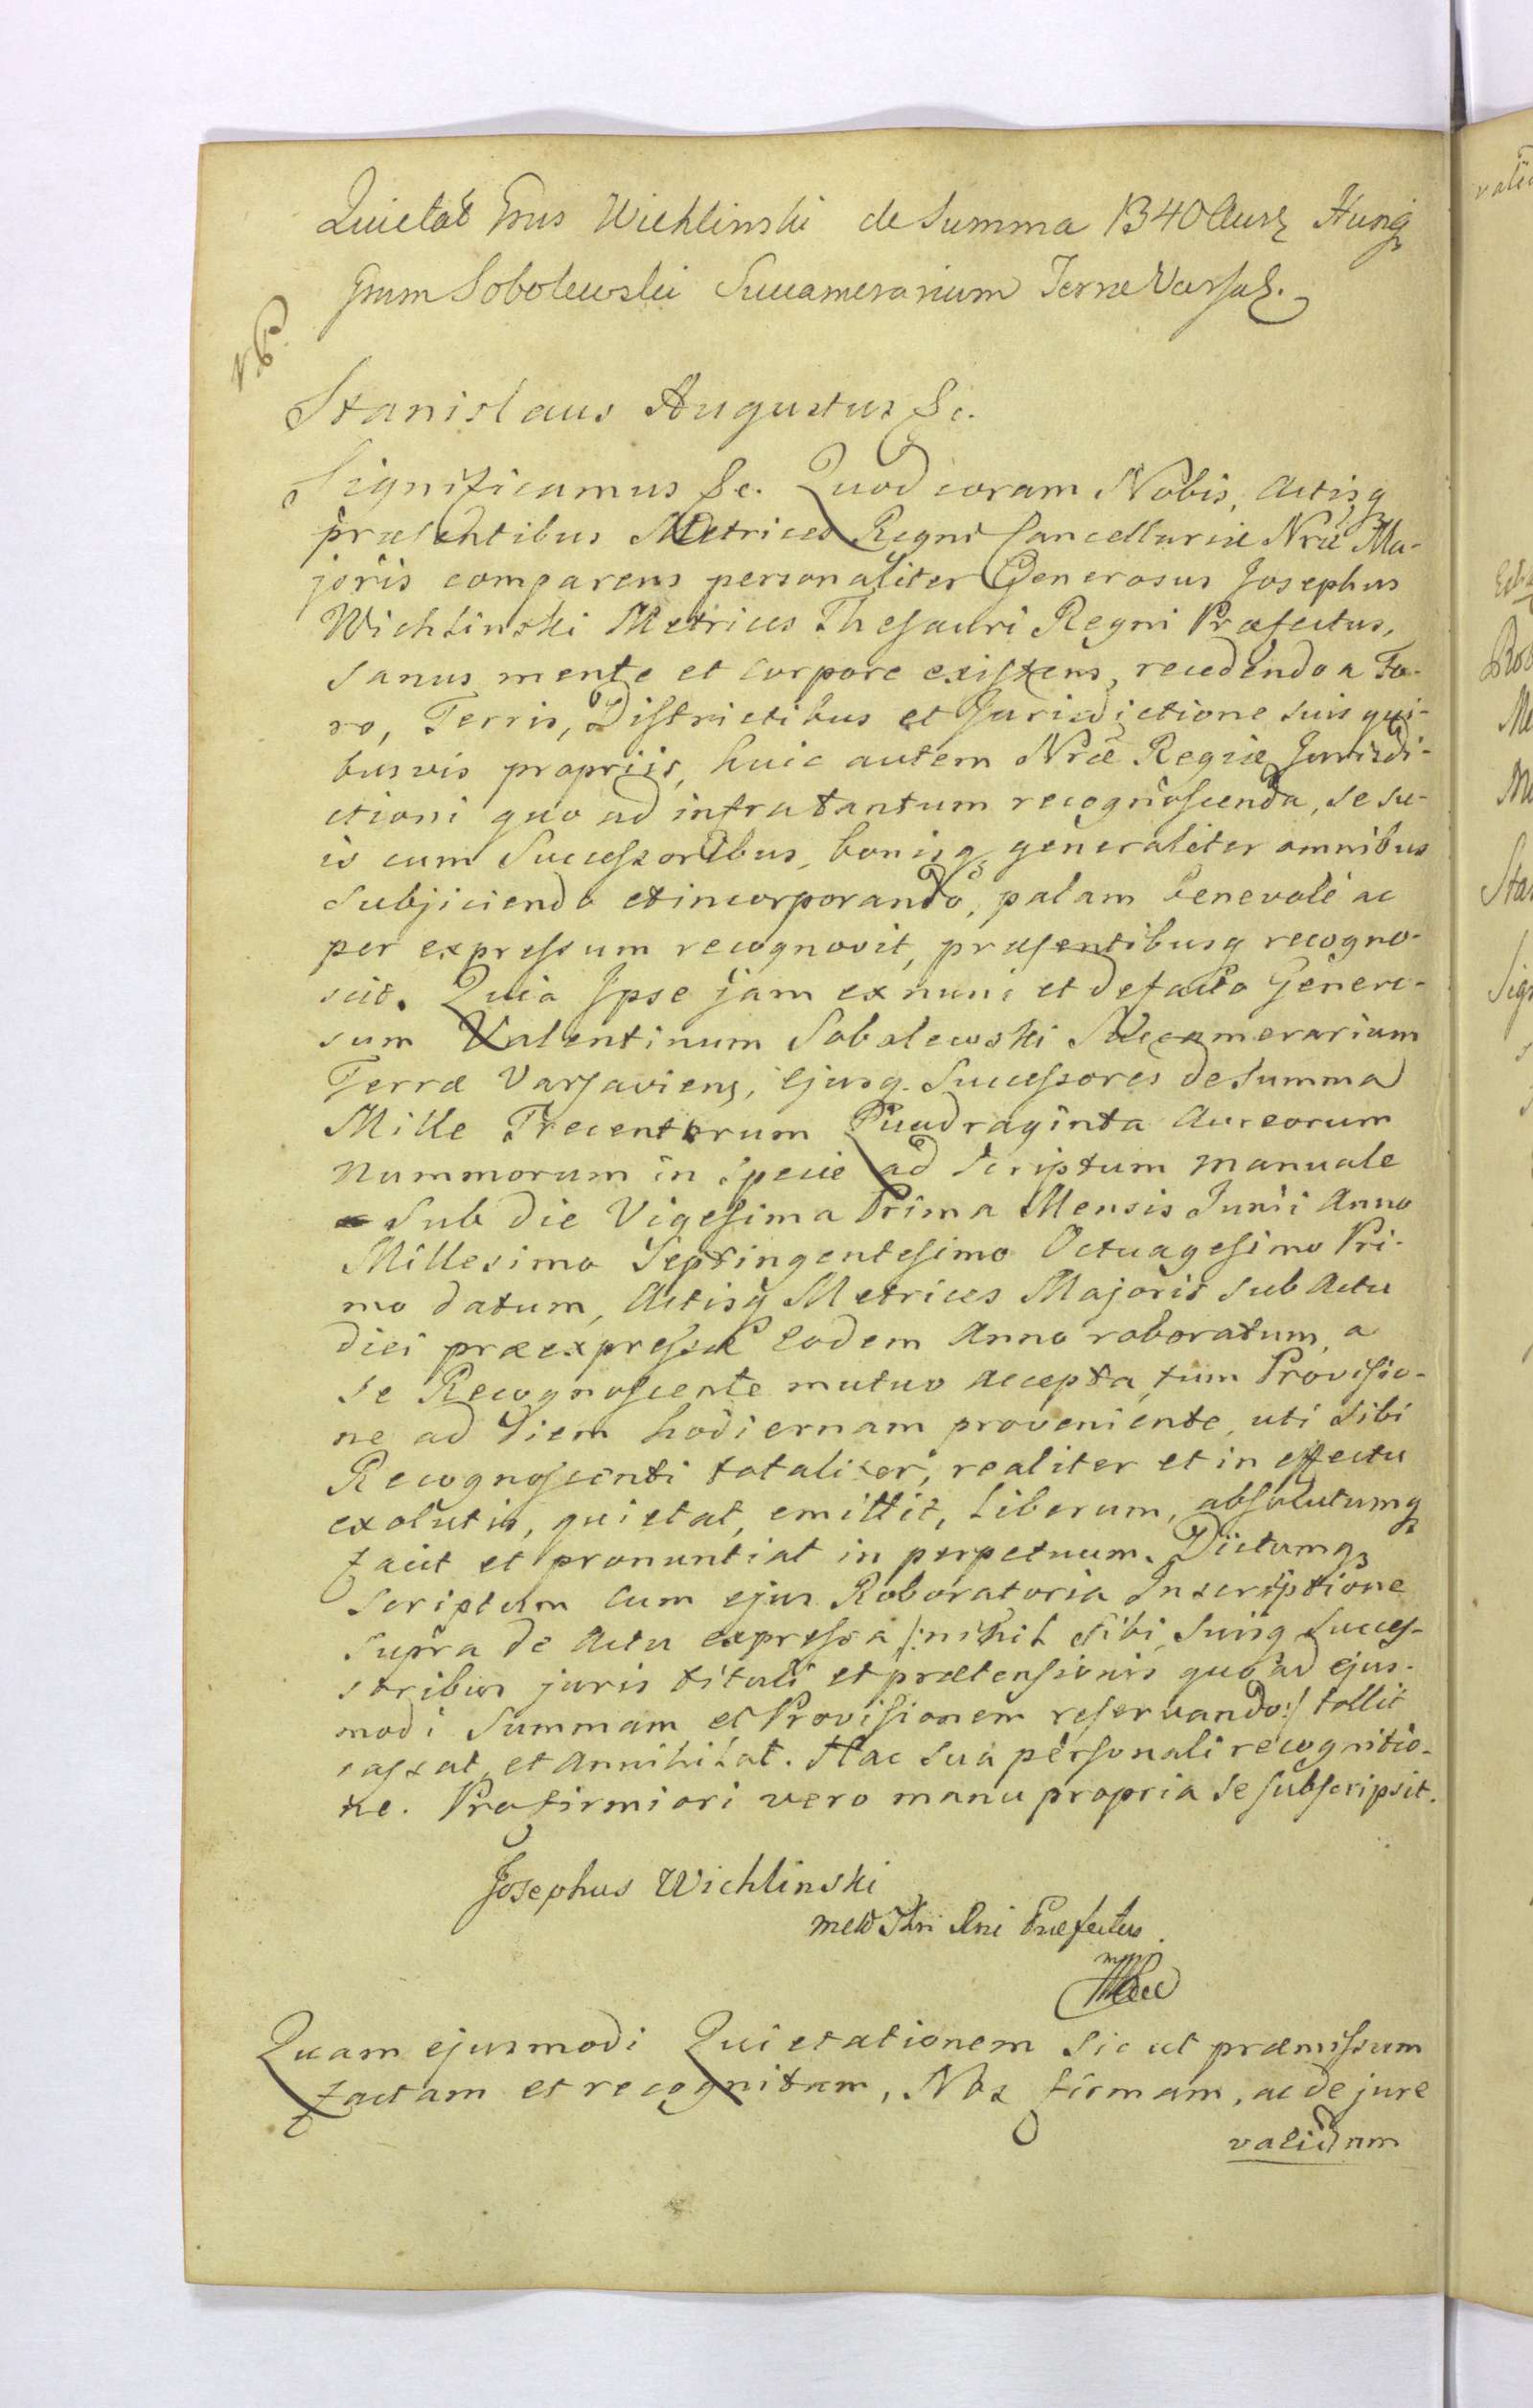 Quietat Gnus Wichlinski de Summa 1340 Aurę Hungę
Gnum Sobolewski Succamerarium Terræ Varsaę.
Stanislaus Augustus &c.
Significamus &c. Quod coram Nobis, Actisq
præsentibus Metrices Regni Cancellariæ Nræ Ma-
joris comparens personaliter Generosus Josephus
Wichlinski Metrices Thesauri Regni Præfectus,
sanus mente et corpore existens, recedendo a Fo-
ro, Terris, Districtibus et Jurisdictione suis qui-
busvis propriis, huic autem Nræ Regiæ Jurisdi-
ctioni quo ad infratantum recognoscenda, se su-
is cum Successoribus, bonisq generaliter omnibus
subjiciendo et incorporando, palam benevole ac
per expressum recognovit, præsentibusq recogno-
scit. Quia Ipse jam ex nunc et de facto Genero-
sum Valentinum Sobolewski Succamerarium
Terræ Varsaviens, ejusq. Successores de Summa
Mille Trecentorum Quadraginta Aureorum
Nummorum in specie ad Scriptum manuale
sub die Vigesima Prima Mensis Junii Anno
Millesimo Septingentesimo Octuagesimo Pri-
mo datum, Actisq Metrices Majoris sub Actu
diei præexpressæ eodem Anno roboratum, a
se Recognoscente mutuo accepta, tum Provisio-
ne ad diem hodiernam proveniente, uti sibi
Recognoscenti totaliter, realiter et in effectu
exolutis, quietat, emittit, liberum, absolutumq
facit et pronuntiat in perpetuum. Dictumq
Scriptum cum ejus Roboratoria Inscriptione
supra de Actu expressa /: nihil sibi, suisq Succes-
soribus juris tituli et prætensionis quo ad ejus-
modi Summam et Provisionem reservando :/ tollit
cassat, et annihilat. Hac sua personali recognitio-
ne. Pro firmiori vero manu propria se subscripsit.
Josephus Wichlinski
Præfectus
mpp
Quam ejusmodi Quietationem sic ut præmissum
factam et recognitam, Nos firmam, ac de jure
validam